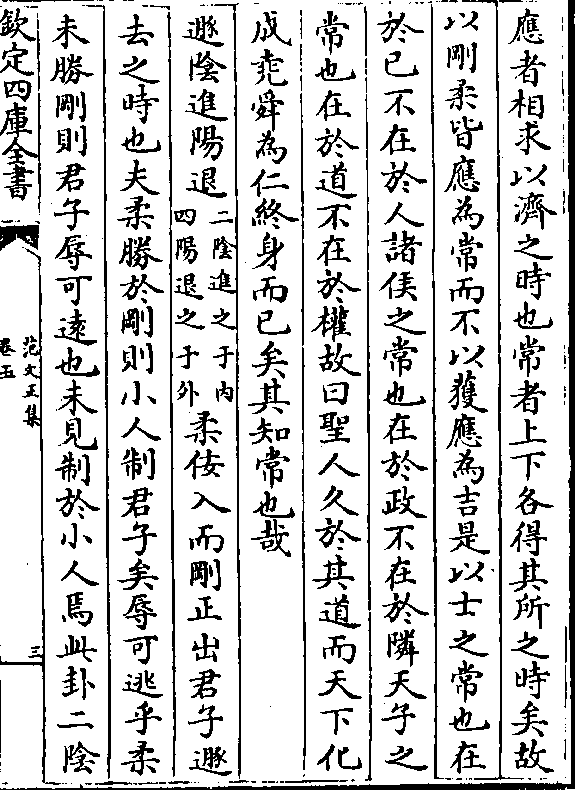 應者相求以濟之時也常者上下各得其所之時矣故
以剛柔皆應為常而不以獲應為吉是以士之常也在
於已不在於人諸侯之常也在於政不在於隣天子之
常也在於道不在於權故曰聖人久於其道而天下化
成堯舜為仁終身而已矣其知常也哉
遯陰進陽退二陰進之于内
四陽退之于外柔佞入而剛正出君子遯
去之時也夫柔勝於剛則小人制君子矣辱可逃乎柔
未勝剛則君子辱可逺也未見制於小人焉此卦二陰
欽定四庫全書
范文正集
卷五
三